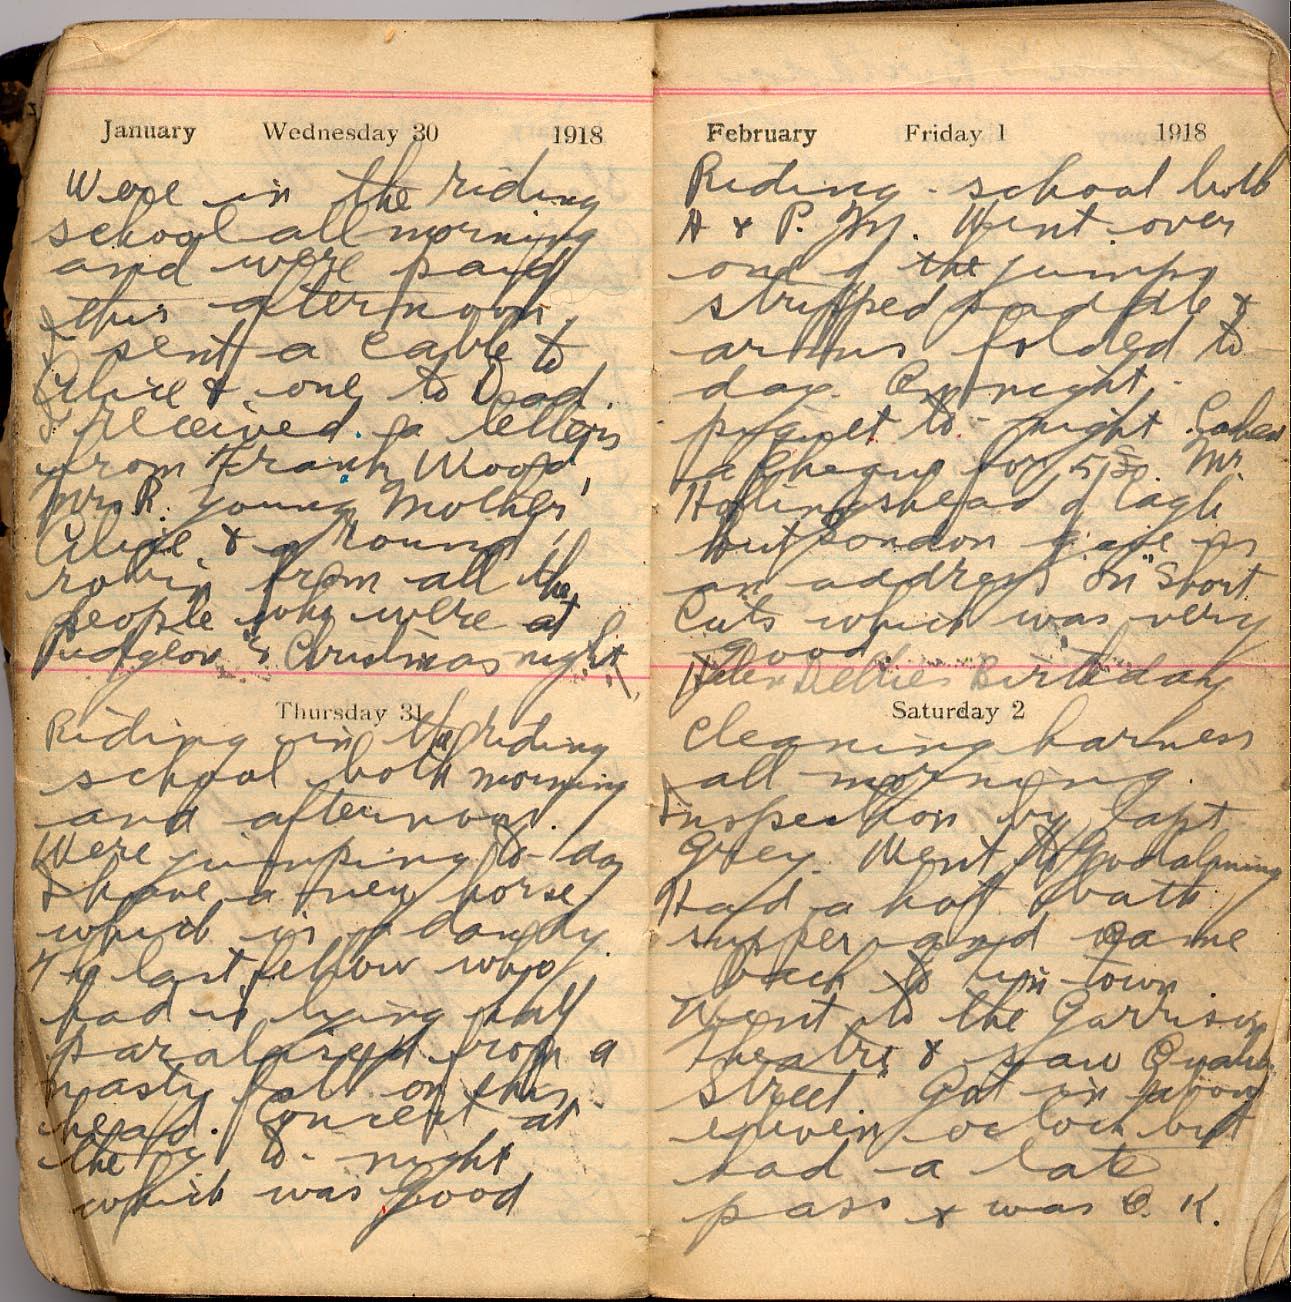 January Wednesday 30 1918
Were in the riding
school all morning
and were paid
this afternoon.
I sent a cable to
Alice & one to Dad.
I received a letters
from Frank Wood,
Mrs R. Young, Mother,
Alice & a round
robin from all the
people who were at
Pudgeon's Christmas night
Thursday 31
Riding in the riding
school both morning
and afternoon.
Were jumping to-day
I have a new horse
which is a dandy.
The last fellow who
had is lying half
paralized from a
nasty fall on his
head. Concert at
the Y to-night
which was good
February Friday 1 1918
Riding-school both
A & P.M. Went over
one of the jumps
stripped saddle &
arms folded to-
day. On night-
piquet to-night. Cashed
a cheque for 5/
Mr.
Hollingshead of Eagle
Hut London gave us
an address on "Short
Cuts which was very
good
Helen Birthday
Saturday 2
Cleaning harness
all morning.
Inspection by Capt
Grey. Went to Godalming
Had a hot bath
supper and came
back to tin town.
Went to the Garrison
Theatre & saw Quality
Street. Got in about
eleven oclock but
had a late
pass & was O.K.